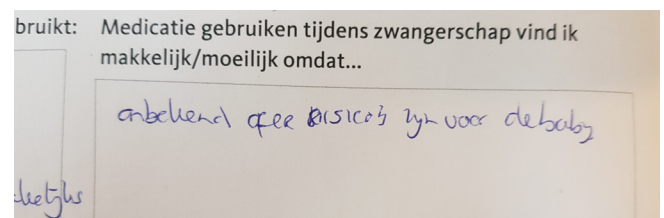 bruikt:
Medicatie gebruiken tijdens zwangerschap vind ik
makkelijk/moeilijk omdat...
onbekend of er risico's zijn voor de baby